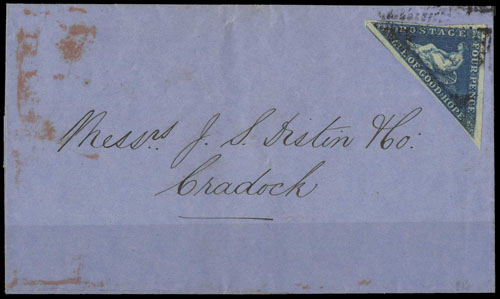 POSTAGE
FOUR PENCE
CAPE OF GOOD HOPE
Messrs J. S. Distin & Co:
Cradock